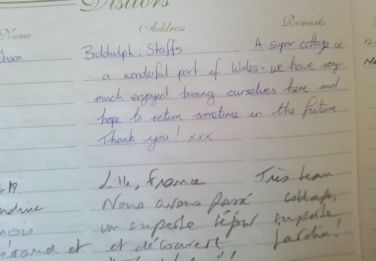 Visitors
Name Address Remarks
Biddulph, Staffs A super cottage in
a wonderful part of Wales - we have very
much enjoyed basing ourselves here and
hope to return sometime in the future
Thank you! xxx
Lille, France Très beau
Nous avons passé cottage,
un superbe séjour superbe,
et et découvert jardin.